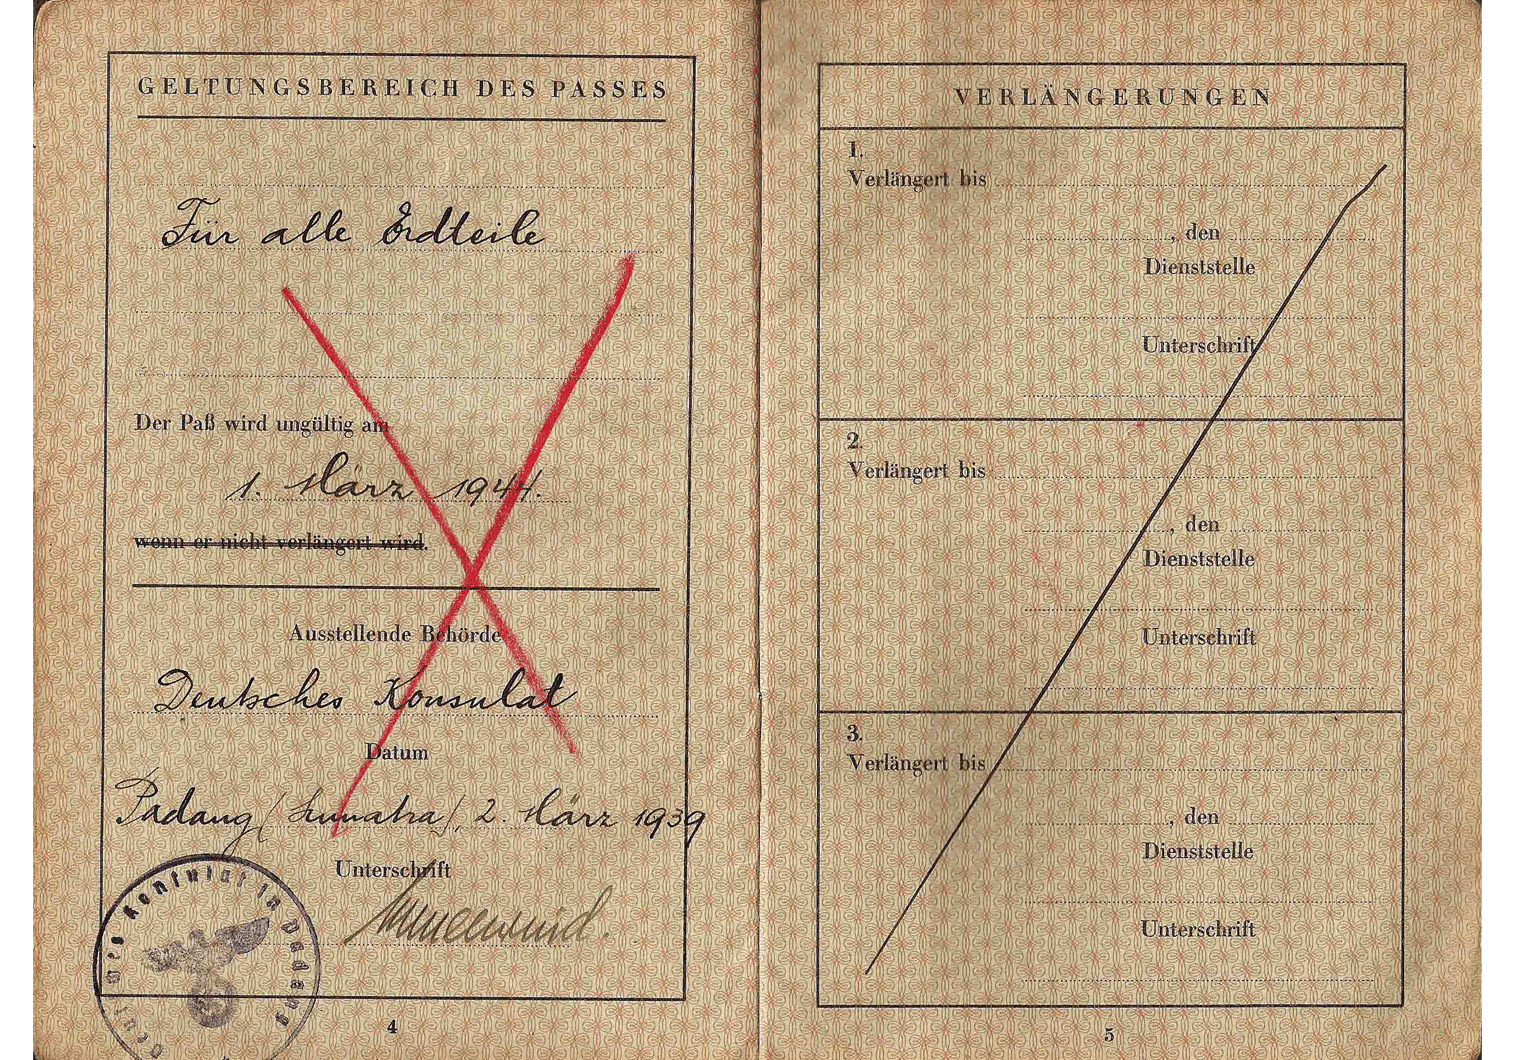 GELTUNGSBEREICH DES PASSES
Für alle Erdteile
Der Paß wird ungültig am
1. März 1944.
wenn er nicht verlängert wird.
Ausstellende Behörde
Deutsches Konsulat
Datum
Padang (Sumatra), 2. März 1939
Unterschrift
Konsulat in Padang
4
VERLÄNGERUNGEN
1.
Verlängert bis
, den
Dienststelle
Unterschrift
2.
Verlängert bis
, den
Dienststelle
Unterschrift
3.
Verlängert bis
, den
Dienststelle
Unterschrift
5